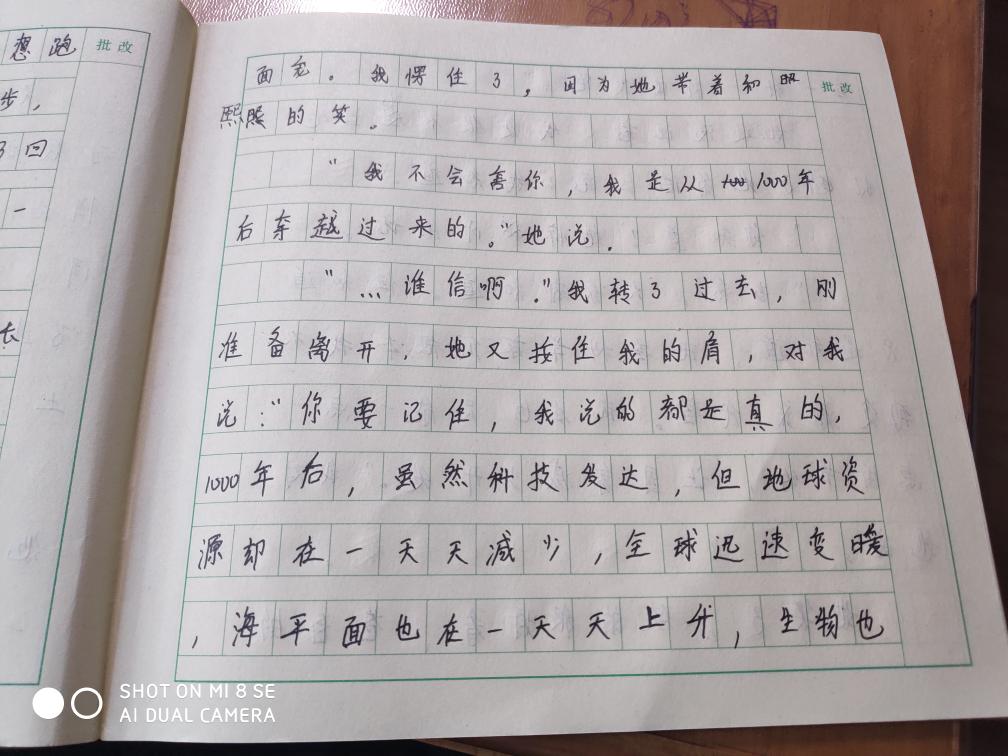 想跑
批改
步，
了回
一
长
批改
面容。我愣住了，因为她带着和照
熙熙的笑。
"我不会离你，我是从1000年
后奔越过来的。"她说。
"…谁信啊。"我转了过去，刚
准备离开，她又按住我的肩，对我
说："你要记住，我说的都是真的，
1000年后，虽然科技发达，但地球资
源却在一天天减少，全球迅速变暖
，海平面也在一天天上升，生物也
SHOT ON MI 8 SE
AI DUAL CAMERA